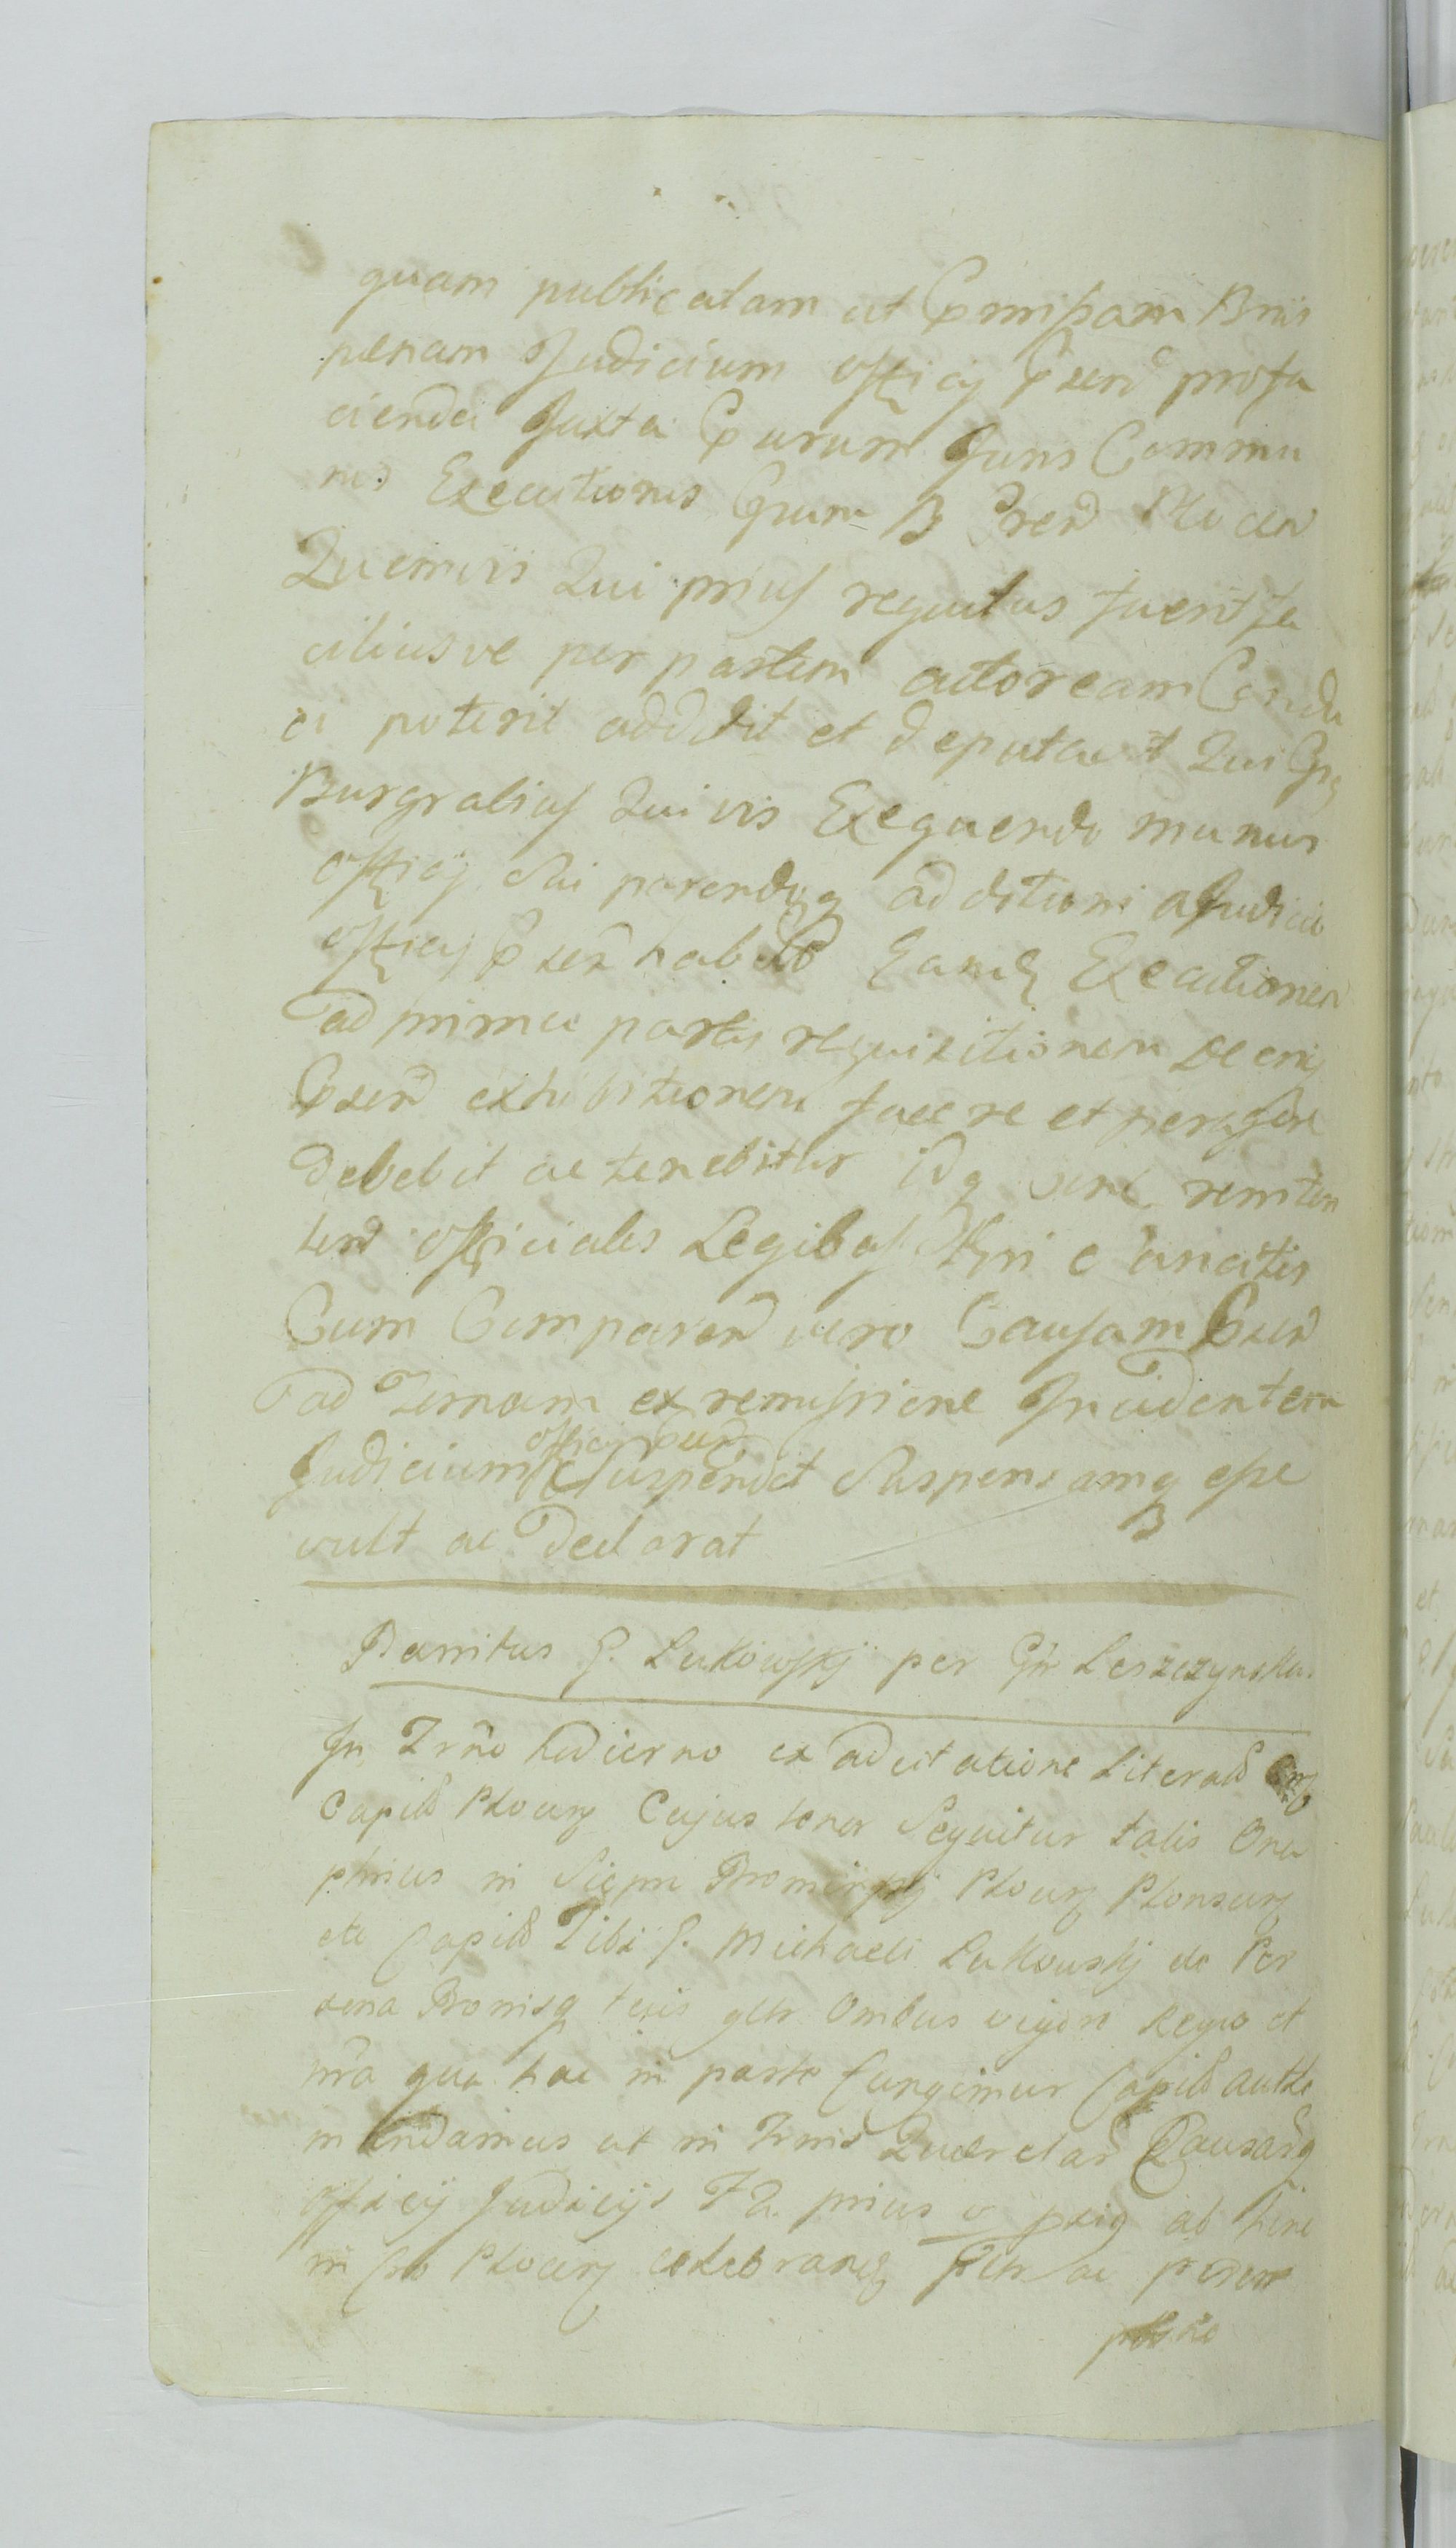 quam publicatam ut Praemissam Bnis
paenam Judicium officij Pxeñ pro fa
cienda Juxta Cursum Juris Commu
nis Executionis Grum B Cren Plocen
Quemvis Qui prius requisitus fuerit fa
ciliusve per partem actoream Condu
ci poterit addidit et deputavit Qui Grs
Burgrabius Quivis Exequendo munus
officij sui parendoq additioni a Judicio
officij Pxeñ habito Eamdē Executionem
ad primae partis requisitionem Decreti
Pxeñ exhibitionem facere et peragere
debebit ac tenebitur idq sine remitten
tend officiales Legibus Regni e sancitis
Cum Comparen vero Causam Pxeñ
ad Ternam ex remissione Incidentem
Judicium officij Pxeñ Suspendit Suspensamq esse
vult ac Declarat
Bannitus G. Lukowskj per Gñ Leszczynska
In Trño hodierno ex adcitatione Literali Crñ
Capitl Plocen Cujus tenor Sequitur talis Onu
phrius in Siepn Bromirskj Plocen Plonscen
etc Capitl Tibi G. Michaeli Lukowskj de Per
sona Bonisq tuis gltr Ombus vigore Regia et
nr̃a qua hac in parte fungimur Capitl autte
mandamus ut in Trnis Querelar Causarq
officij Judicijs Fa prius v pxiq ab hinc
in Cro Plocen celebrandis pltr ac perem
ptorie